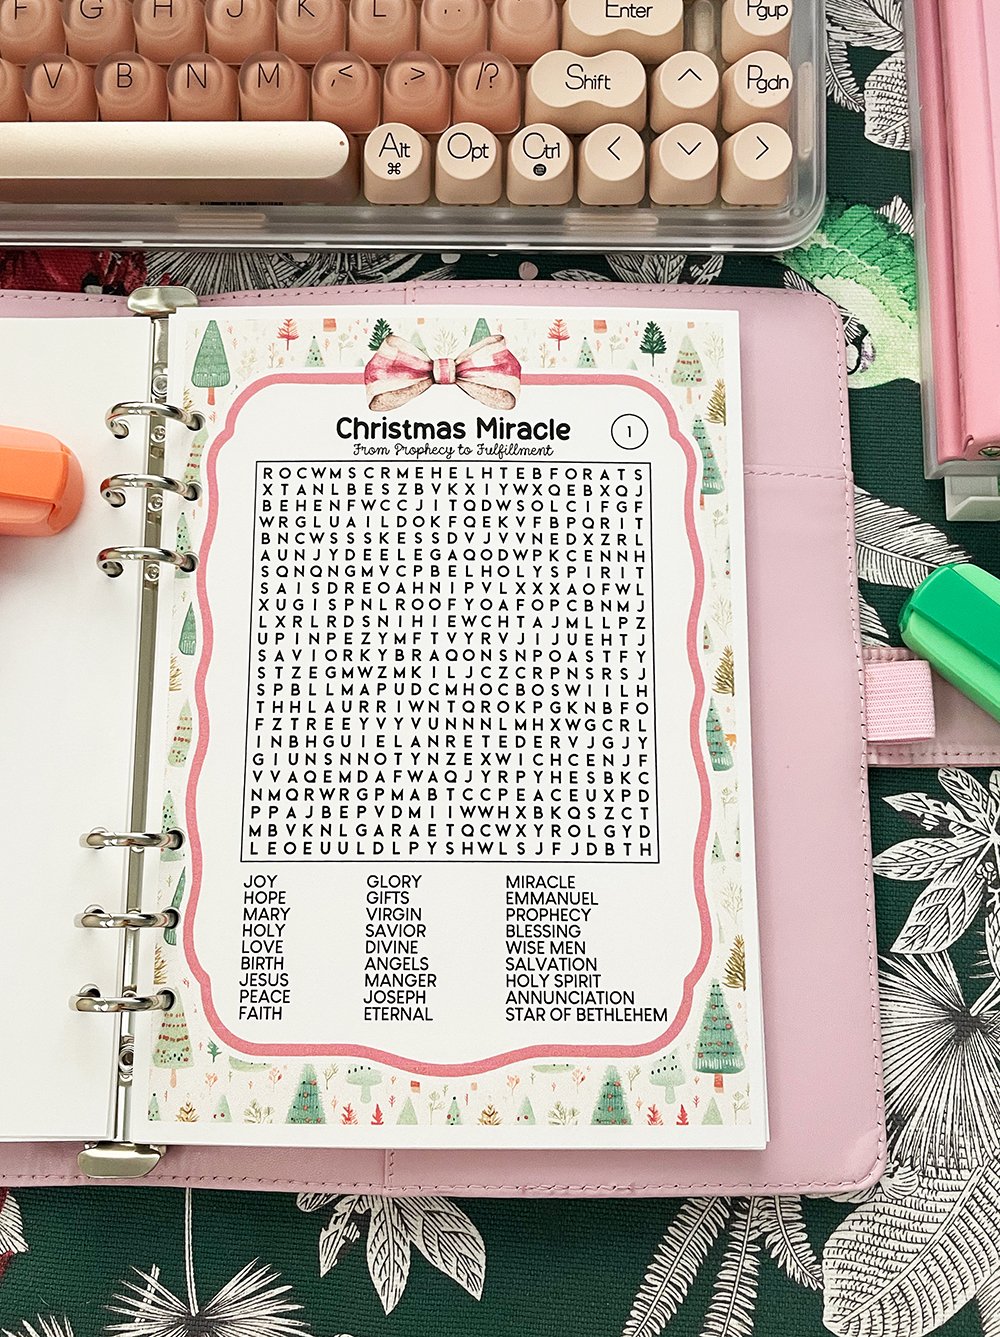 F G H J K L : " Enter Pgup
V B N M ,< .> /? Shift ^ Pgdn
Alt ⌘ Opt Ctrl < ∨ >
Christmas Miracle 1
From Prophecy to Fulfillment
ROCWMSCRMEHELHTEBFORATS
XTANLBESZBVKXIYWXQEBXQJ
BEHENFWCCJITQDWSOLCIFGF
WRGLUAILDOKFQEKVFBPQRIT
BNCWSSSKESSDVJVVNEDXZRL
AUNJYDEELEGAQODWPKCENNH
SQNQNGMVCPBELHOLYSPIRIT
SAISDREOAHNIPVLXXXAOFWL
XUGISPNLROOFYOAFOPCBNMJ
LXRLRDSNIHIEWCHTAJMLLPZ
UPINPEZYMFTVYRVJIJUEHTJ
SAVIORKYBRAQONSNPOASTFY
STZEGMWZMKILJCZCRPNSRSJ
SPBLLMAPUDCMHOCBOSWIILH
THHLAURRIWNTQROKPGKNBFO
FZTREEYVYVUNNNLMHXWGCRL
INBHGUIELANRETEDERVJGJY
GIUNSNNOTYNZEXWICHCENJF
VVAQEMDAFWAQJYRPYHESBKC
NMQRWRGPMABTCCPEACEUXPD
PPAJBEPVDMIIWWHXBKQSZCT
MBVKNLGARAETQCWXYROLGYD
LEOEUULDLPYSHWLSJFJDBTH
JOY GLORY MIRACLE
HOPE GIFTS EMMANUEL
MARY VIRGIN PROPHECY
HOLY SAVIOR BLESSING
LOVE DIVINE WISE MEN
BIRTH ANGELS SALVATION
JESUS MANGER HOLY SPIRIT
PEACE JOSEPH ANNUNCIATION
FAITH ETERNAL STAR OF BETHLEHEM